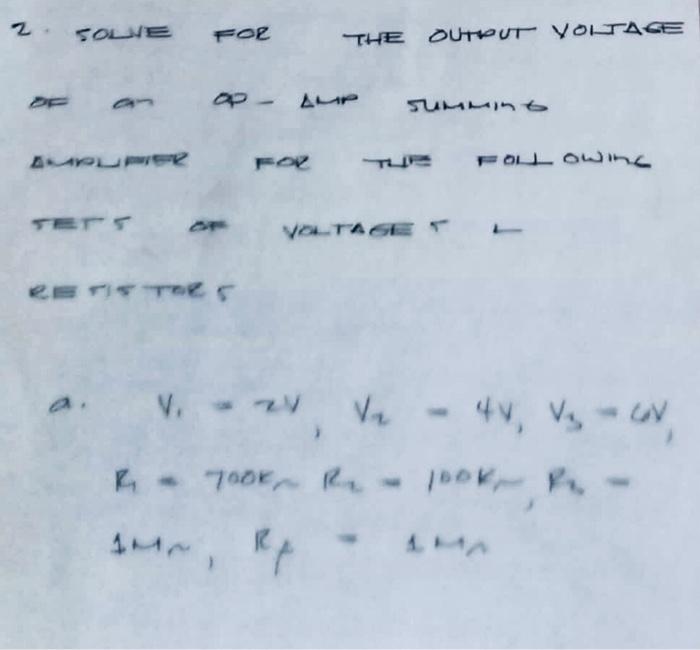 2. SOLVE FOR THE OUTPUT VOLTAGE
OF an OP-AMP SUMMING
AMPLIFIER FOR THE FOLLOWING
SETS OF VOLTAGES &
RESISTORS
a. V₁ = 2V, V₂ = 4V, V₃ = 6V,
R₁ = 700KΩ R₂ = 100KΩ, R₃ =
1MΩ, Rf = 1MΩ